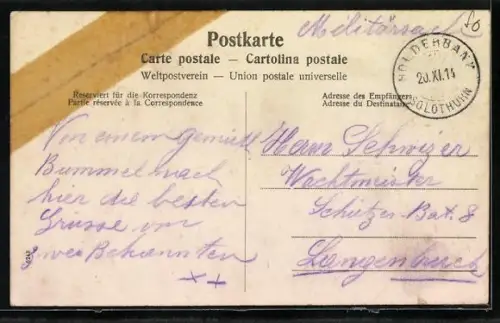 80
Militärsache
Postkarte
Carte postale – Cartolina postale
Weltpostverein – Union postale universelle
HOLDERBANK
20.XI.14
SOLOTHURN
Reserviert für die Korrespondenz
Partie réservée à la Correspondence
Adresse des Empfängers
Adresse du Destinataire
Von einem gemütl.
Bummel nach
hier die besten
Grüsse von
zwei Bekannten
x x
Herrn Schwizer
Wachtmeister
Schützen Bat. 8
Langenbruck